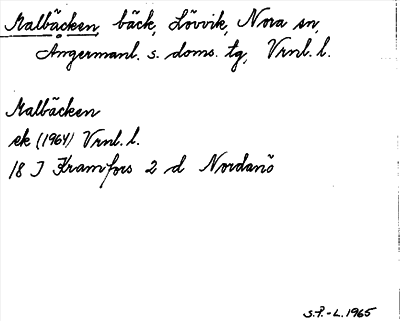 Malbäcken bäck, Lövvik, Nora sn,
Ångermanl. s. doms. tg, Vrnl. l.
Malbäcken
ek (1964) Vrnl. l.
18 J Kramfors 2 d Nordanö
S.P.-L. 1965